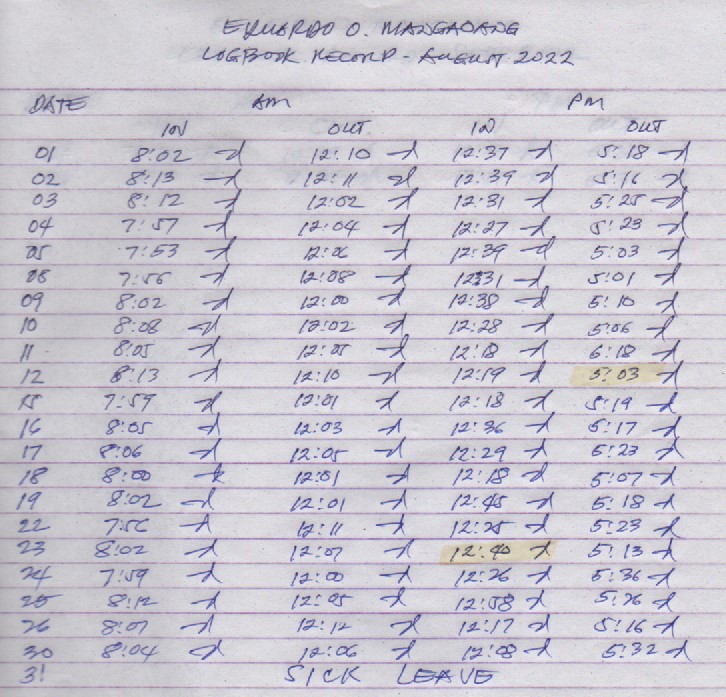 EDUARDO O. MANGAOANG
LOGBOOK RECORD - AUGUST 2022
DATE AM PM
IN OUT IN OUT
01 8:02 12:10 12:37 5:18
02 8:13 12:11 12:39 5:16
03 8:12 12:02 12:31 5:25
04 7:57 12:04 12:27 5:23
05 7:53 12:06 12:39 5:03
08 7:56 12:08 12:31 5:01
09 8:02 12:00 12:38 5:10
10 8:08 12:02 12:28 5:06
11 8:05 12:05 12:18 6:18
12 8:13 12:10 12:19 5:03
15 7:59 12:01 12:18 5:19
16 8:05 12:03 12:36 5:17
17 8:06 12:05 12:29 5:23
18 8:00 12:01 12:18 5:07
19 8:02 12:01 12:45 5:18
22 7:56 12:11 12:25 5:23
23 8:02 12:07 12:40 5:13
24 7:59 12:00 12:26 5:36
25 8:12 12:05 12:58 5:26
26 8:07 12:12 12:17 5:16
30 8:04 12:06 12:08 5:32
31 SICK LEAVE